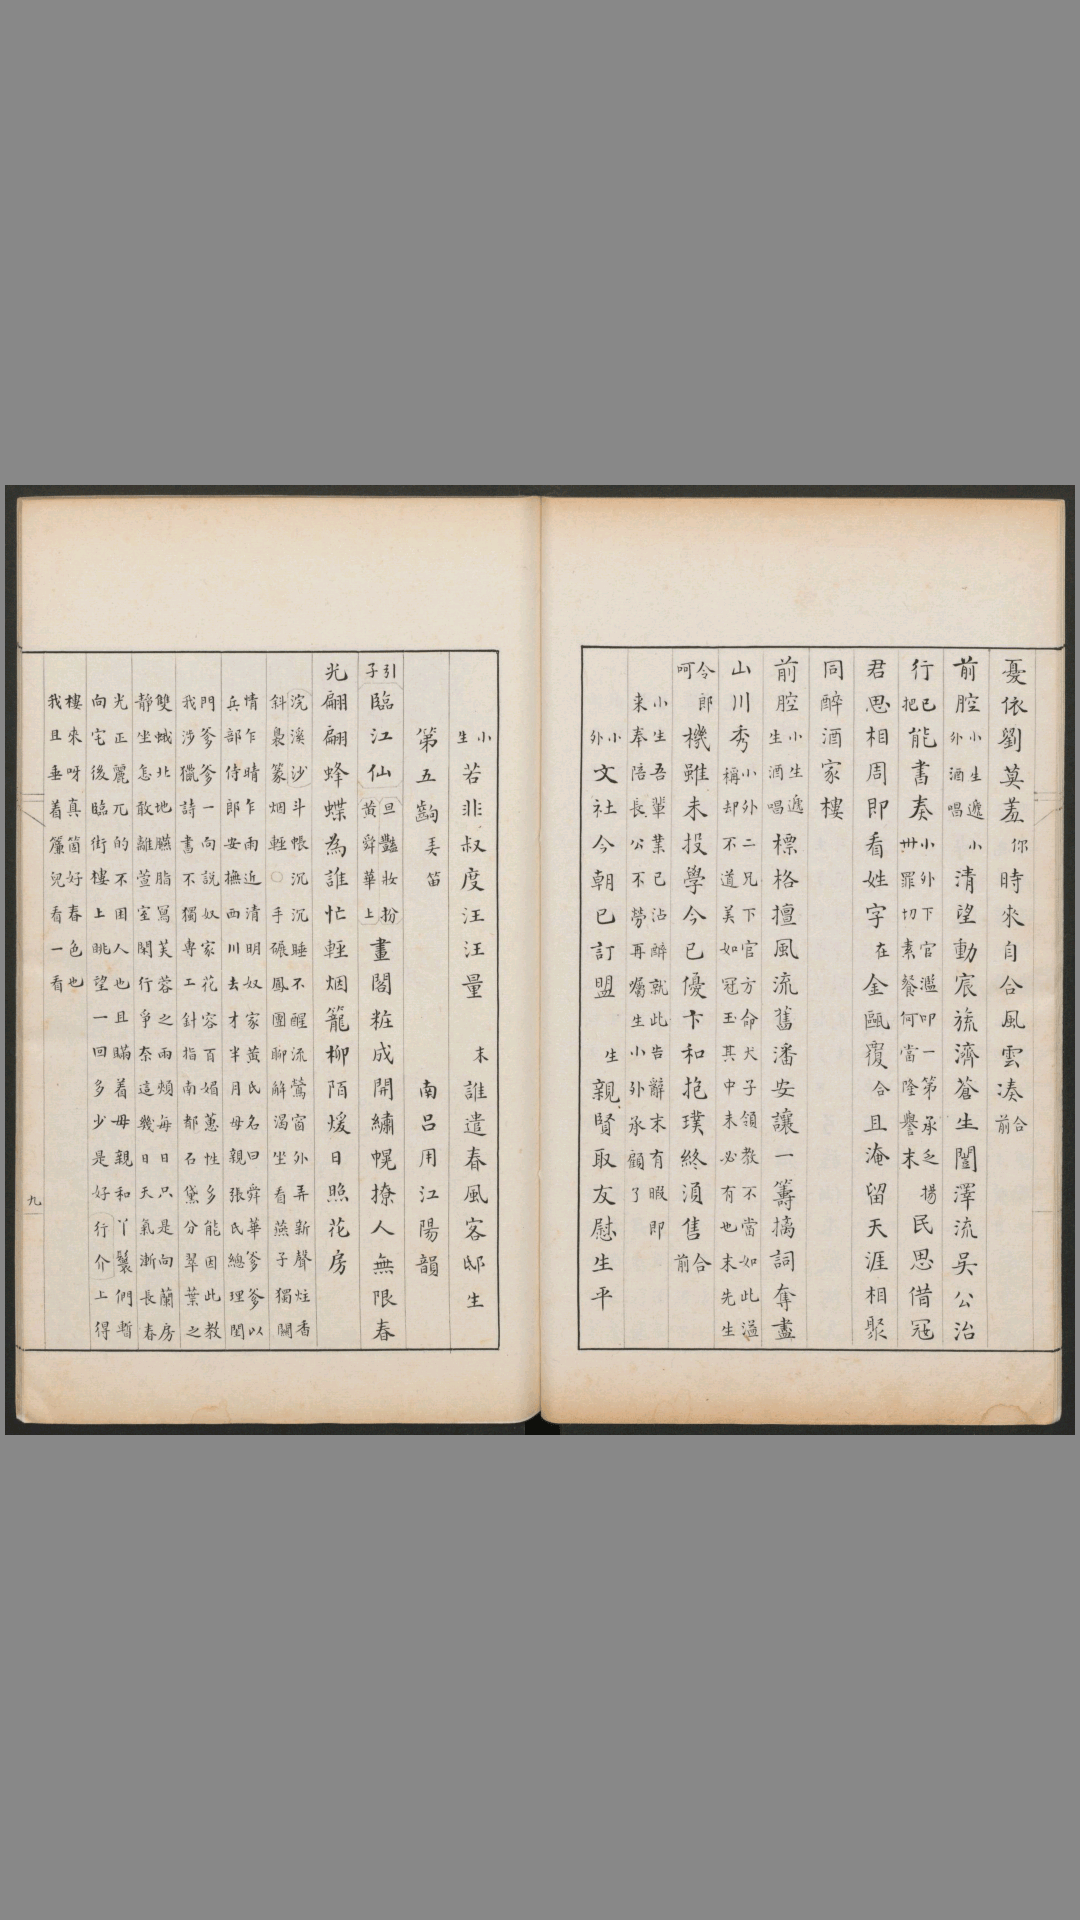 憂依劉莫羞你時來自合風雲湊合前
前腔小生遞外酒唱小清望動宸旒濟蒼生闓澤流吳公治
行已把能書奏小外下官濫叨一第承乏卅罪切素餐何當隆譽末揚民思借冠
君思相周即看姓字在金甌覆合且淹留天涯相聚
同醉酒家樓
前腔小生遞生酒唱標格擅風流舊潘安讓一籌摛詞奪盡
山川秀小外二兄下官方命犬子領教不當如此溢稱却不道美如冠玉其中未必有也末先生
令郎呵機雖未投學今已優卞和抱璞終須售合前
小生吾輩業已沾醉就此告辭末有暇即來奉陪長公不勞再囑生小外承顧了
小外文社今朝已訂盟生親賢取友慰生平
小生若非叔度汪汪量末誰遣春風客邸生
第五齣美笛南呂用江陽韻
引子臨江仙旦艷妝扮黃舜華上畫閣粧成開繡幌撩人無限春
光翩翩蜂蝶為誰忙輕烟籠柳陌煖日照花房
浣溪沙斗帳沉沉睡不醒流鶯窗外弄新聲炷香斜裊篆烟輕○手碾鳳團聊解渴坐看燕子獨關
情乍晴乍雨近清明奴家黃氏名曰舜華爹爹以兵部侍郎安撫西川去才半月母親張氏總理閨
門爹爹一向說奴家花容百媚蕙性多能因此教我涉獵詩書不獨專工針指南都石黛分翠葉之
雙蛾北地臙脂寫芙蓉之兩頰每日只是向蘭房靜坐怎敢離萱室閑行爭奈這幾日天氣漸長春
光正麗兀的不困人也且瞞着母親和丫鬟們暫向宅後臨街樓上眺望一回多少是好行介上得
樓來呀真箇好春色也我且垂着簾兒看一看
九